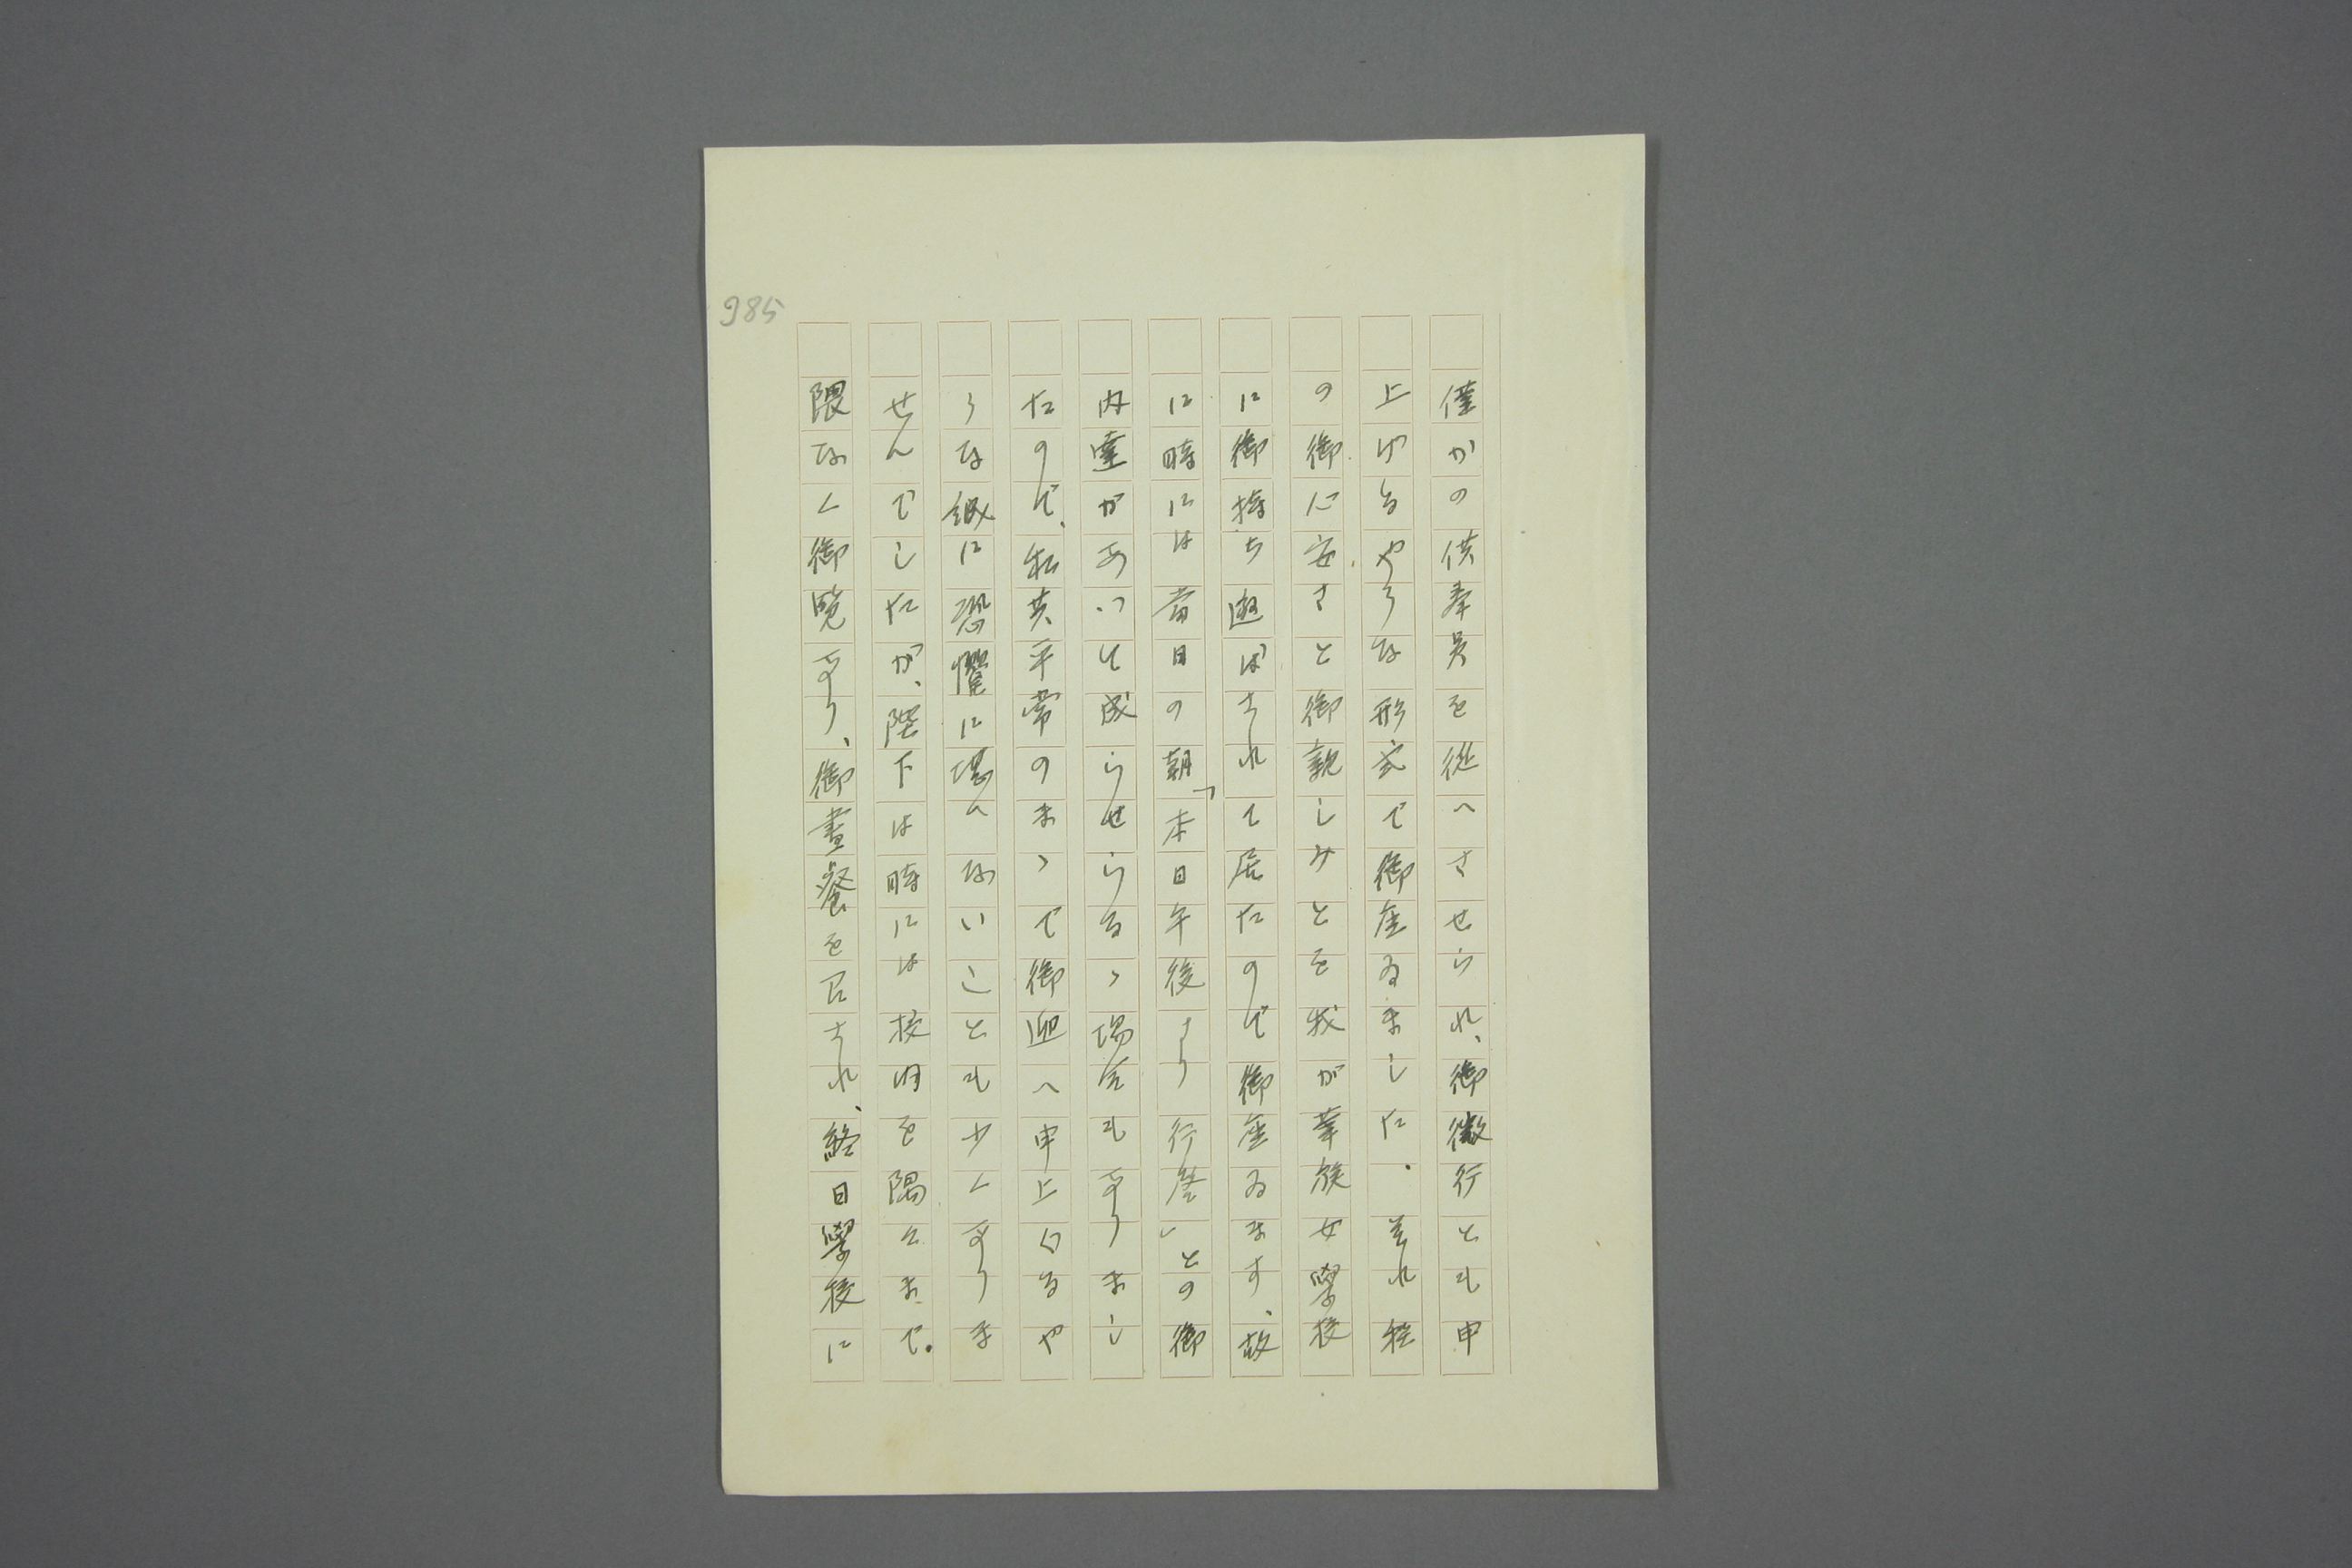 985
僅かの供奉員を從へさせられ、御微行とも申
上げるやうな形式で御座ゐました。それ程
の御心安さと御親しみとを我が華族女學校
に御持ち遊ばされて居たので御座ゐます、故
に時には當日の朝「本日午後より行啓」との御
内達があつて成らせらるゝ場合も有りまし
たので、私共平常のまゝで御迎へ申上ぐるや
うな仪に恐懼に堪へないことも少く有りま
せんでしたが、陛下は時には校内を隅々まで。
隈なく御覧有り、御晝餐を召され、終日學校に